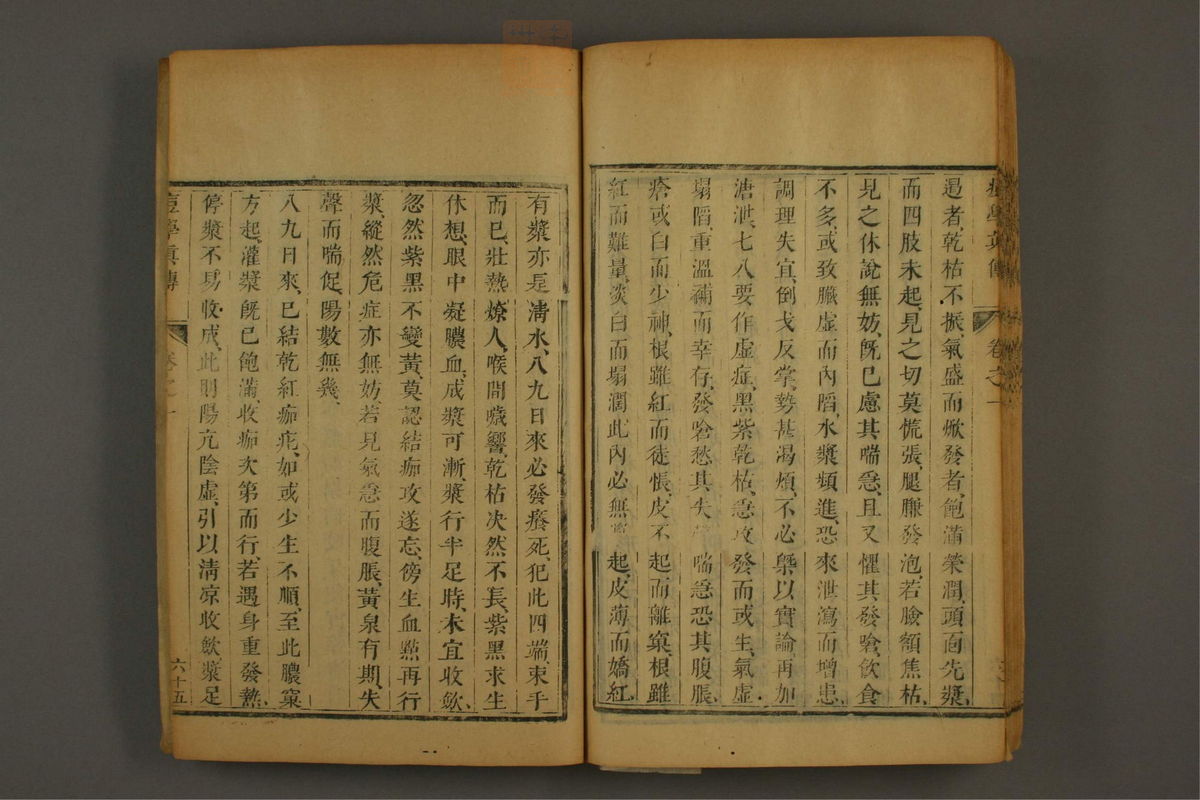 痘學真傳 卷之一
過者、乾枯不振、氣盛而焮發者、飽滿榮潤、頭面先漿、
而四肢未起、見之切莫慌張、腿臁發泡、若臉額焦枯、
見之休說無妨、旣已慮其喘急、且又懼其發嗆、飲食
不多、或致臟虛而內陷、水漿頻進、恐來泄瀉而增患、
調理失宜、倒戈反掌、勢甚渴煩、不必槩以實論、再加
溏泄、七八要作虛症、黑紫乾枯、急攻發而或生、氣虛
塌陷、重溫補而幸存、發嗆愁其失 喘急恐其腹脹、
瘡或白而少神、根雖紅而徒悵、皮不起而離窠、根雖
紅而難量、淡白而塌潤、此內必無 起、皮薄而嬌紅、
有漿亦是清水、八九日來必發癢死、犯此四端、束手
而已、壯熱燎人、喉間嘶響、乾枯决然不長、紫黑求生
休想、眼中凝膿血、成漿可漸、漿行半足時、未宜收斂、
忽然紫黑不變黃、莫認結痂攻遂忘、傍生血㸃再行
漿、縱然危症亦無妨、若見氣急而腹脹、黃泉有期、失
聲而喘促、陽數無幾、
八九日來、已結乾紅痂疕、如或少生不順、至此膿窠
方起、灌漿旣已飽滿、收痂次第而行、若遇身重發熱、
停漿不易收成、此明陽亢陰虛、引以清凉收斂、漿足
痘學真傳 卷之一 六十五